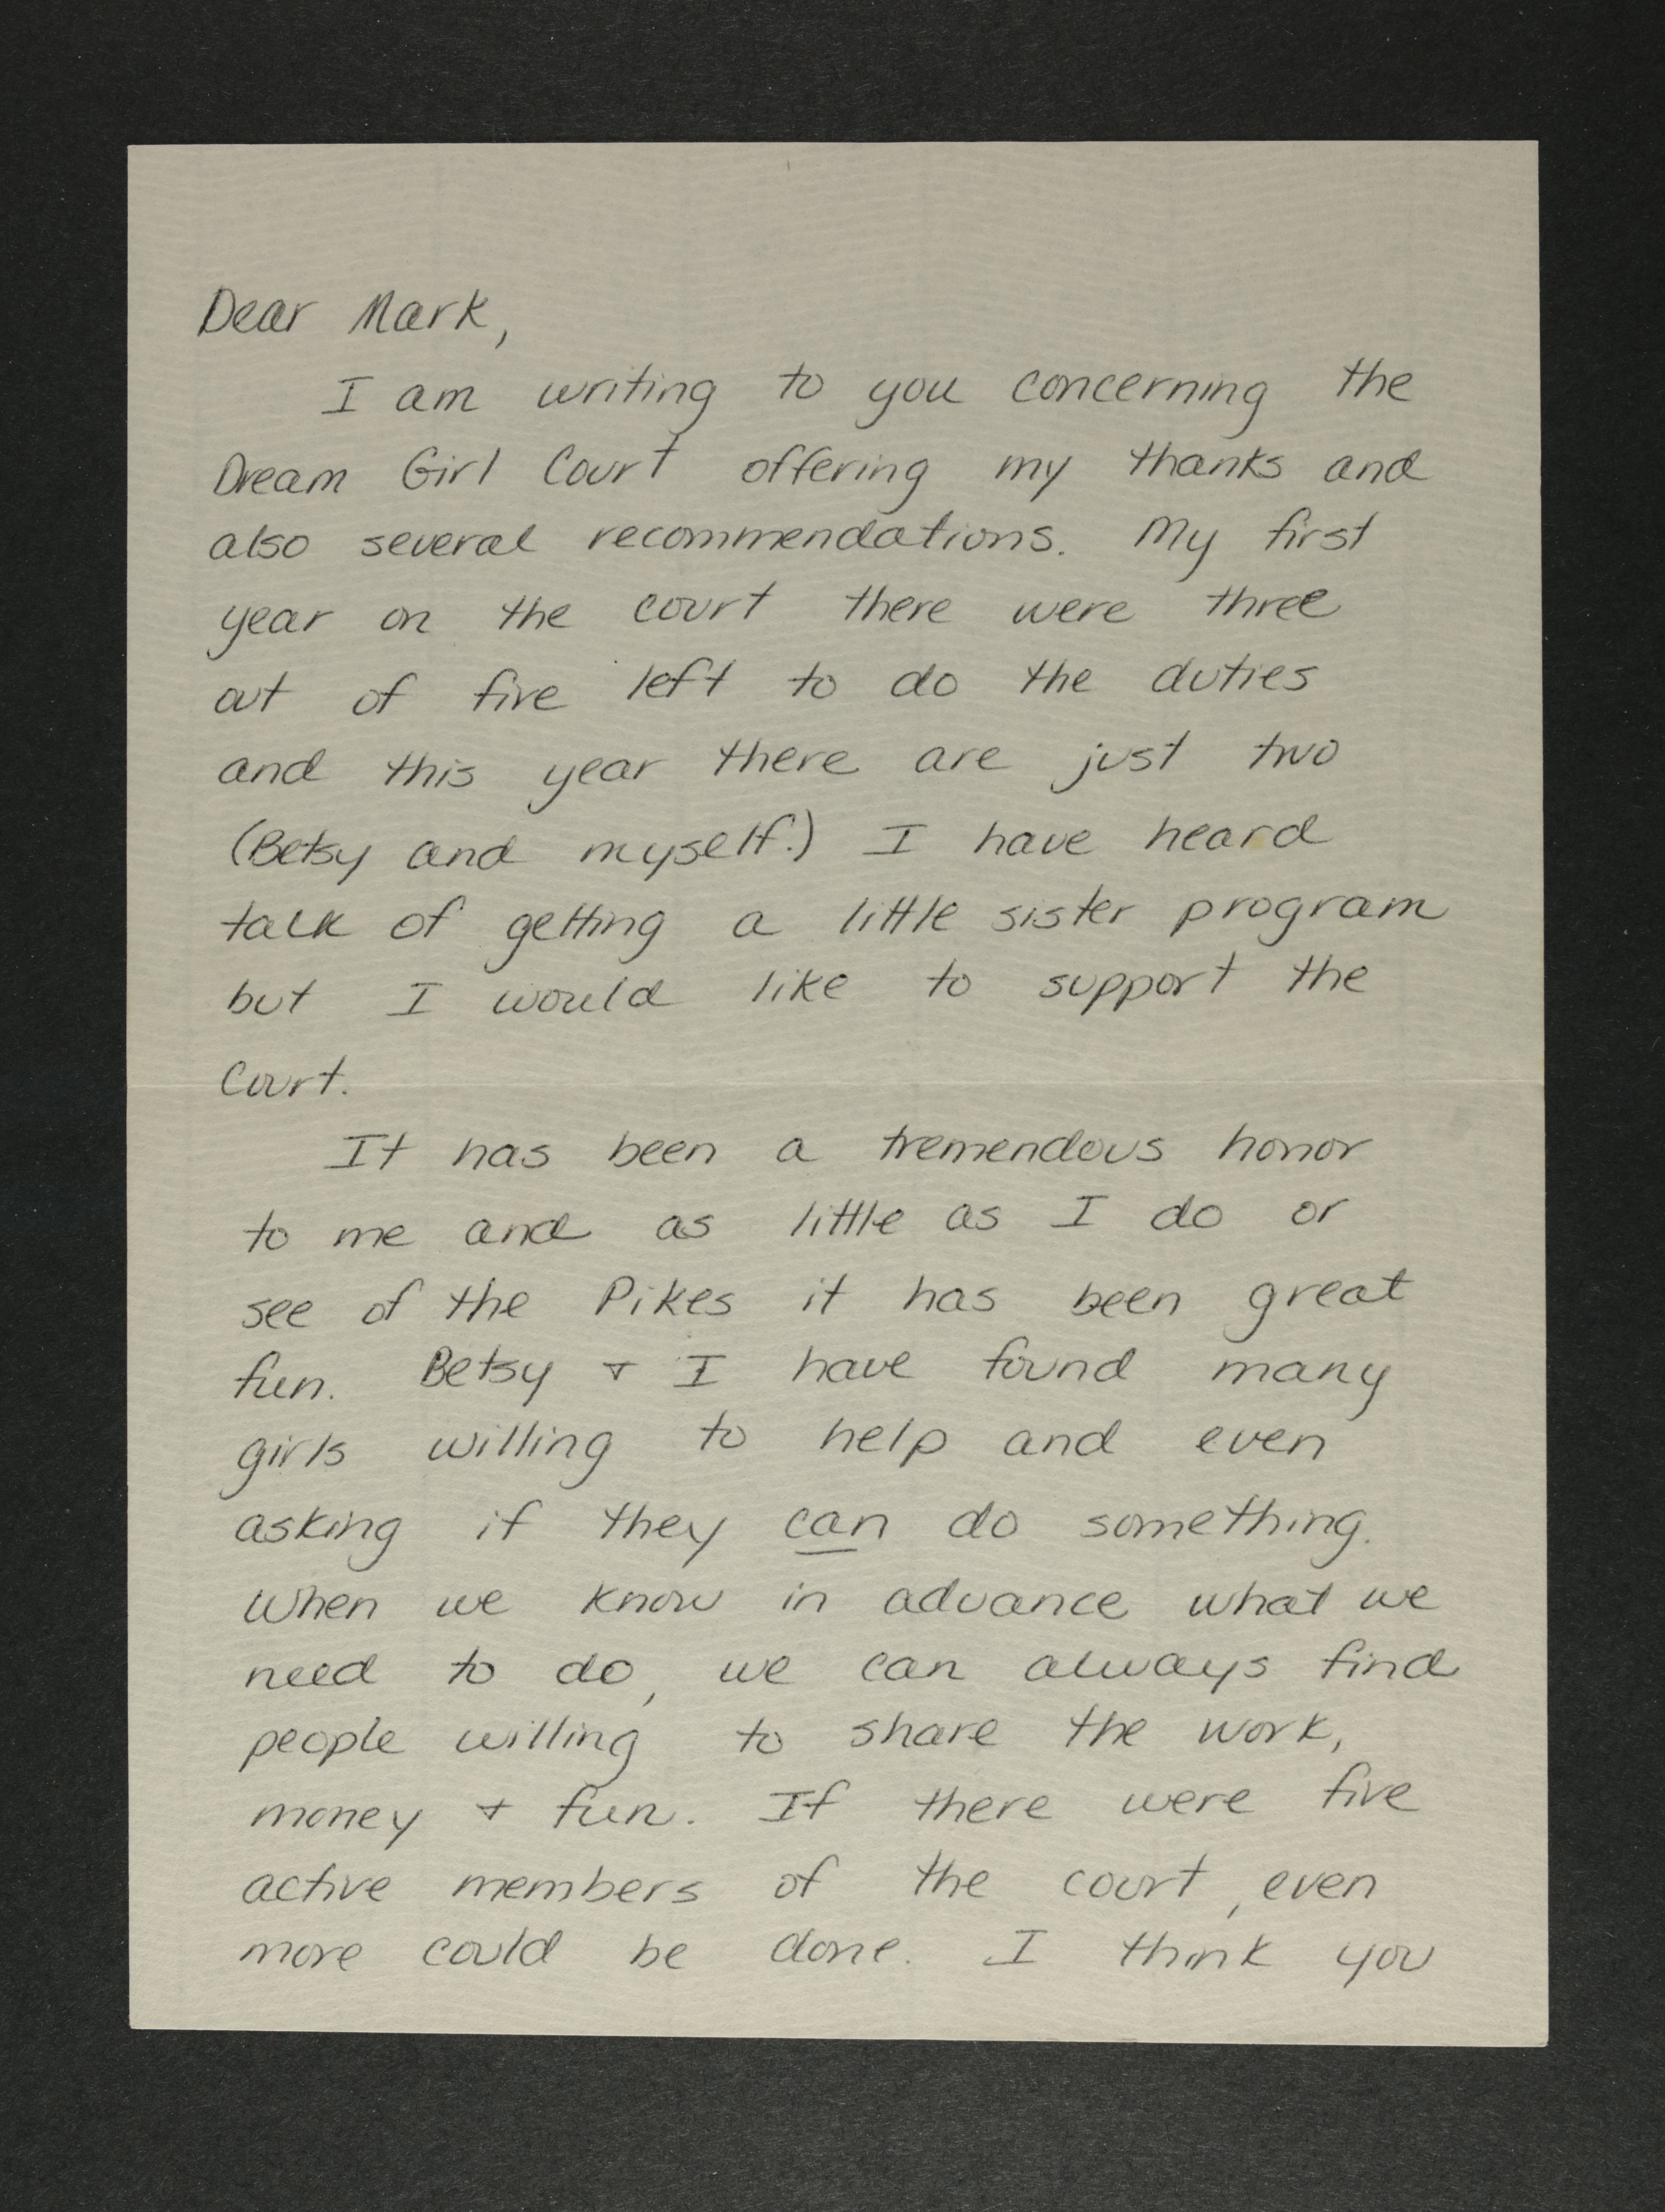 Dear Mark,
I am writing to you concerning the
Dream Girl Court offering my thanks and
also several recommendations. My first
year on the court there were three
out of five left to do the duties
and this year there are just two
(Betsy and myself.) I have heard
talk of getting a little sister program
but I would like to support the
Court.
It has been a tremendous honor
to me and as little as I do or
see of the Pikes it has been great
fun. Betsy + I have found many
girls willing to help and even
asking if they can do something.
When we know in advance what we
need to do, we can always find
people willing to share the work,
money + fun. If there were five
active members of the court, even
more could be done. I think you